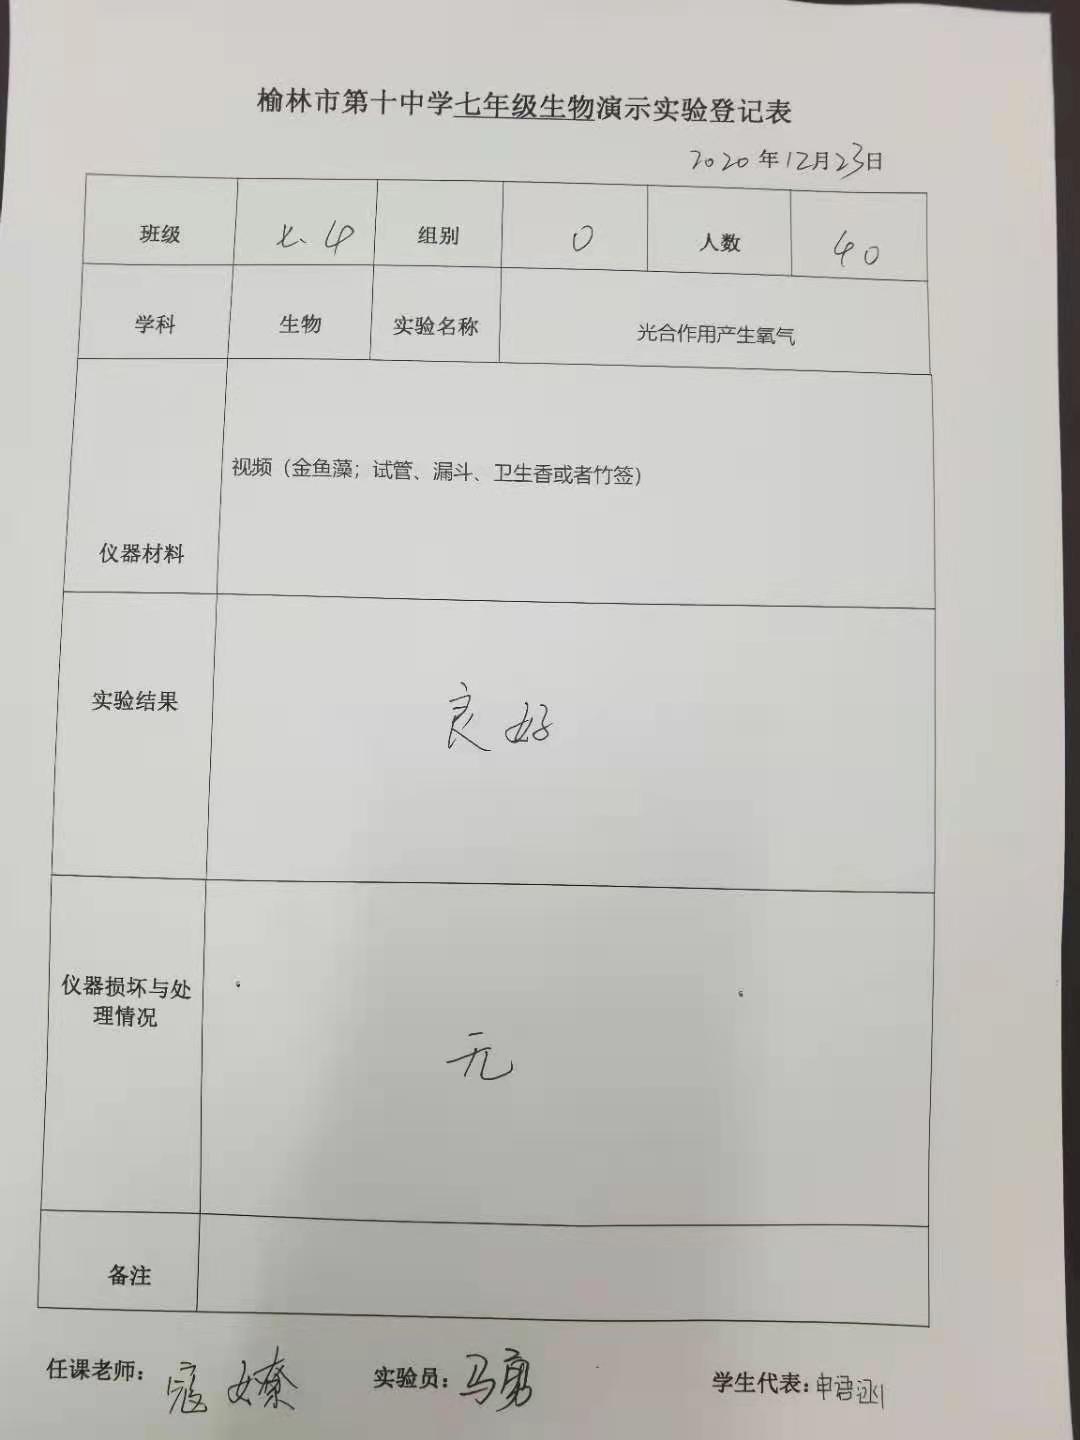 榆林市第十中学七年级生物演示实验登记表
2020年12月23日
班级 七.4 组别 0 人数 40
学科 生物 实验名称 光合作用产生氧气
视频（金鱼藻；试管、漏斗、卫生香或者竹签）
仪器材料
实验结果 良好
仪器损坏与处
理情况
无
备注
任课老师：寇嫽 实验员：马勇 学生代表：申语涵